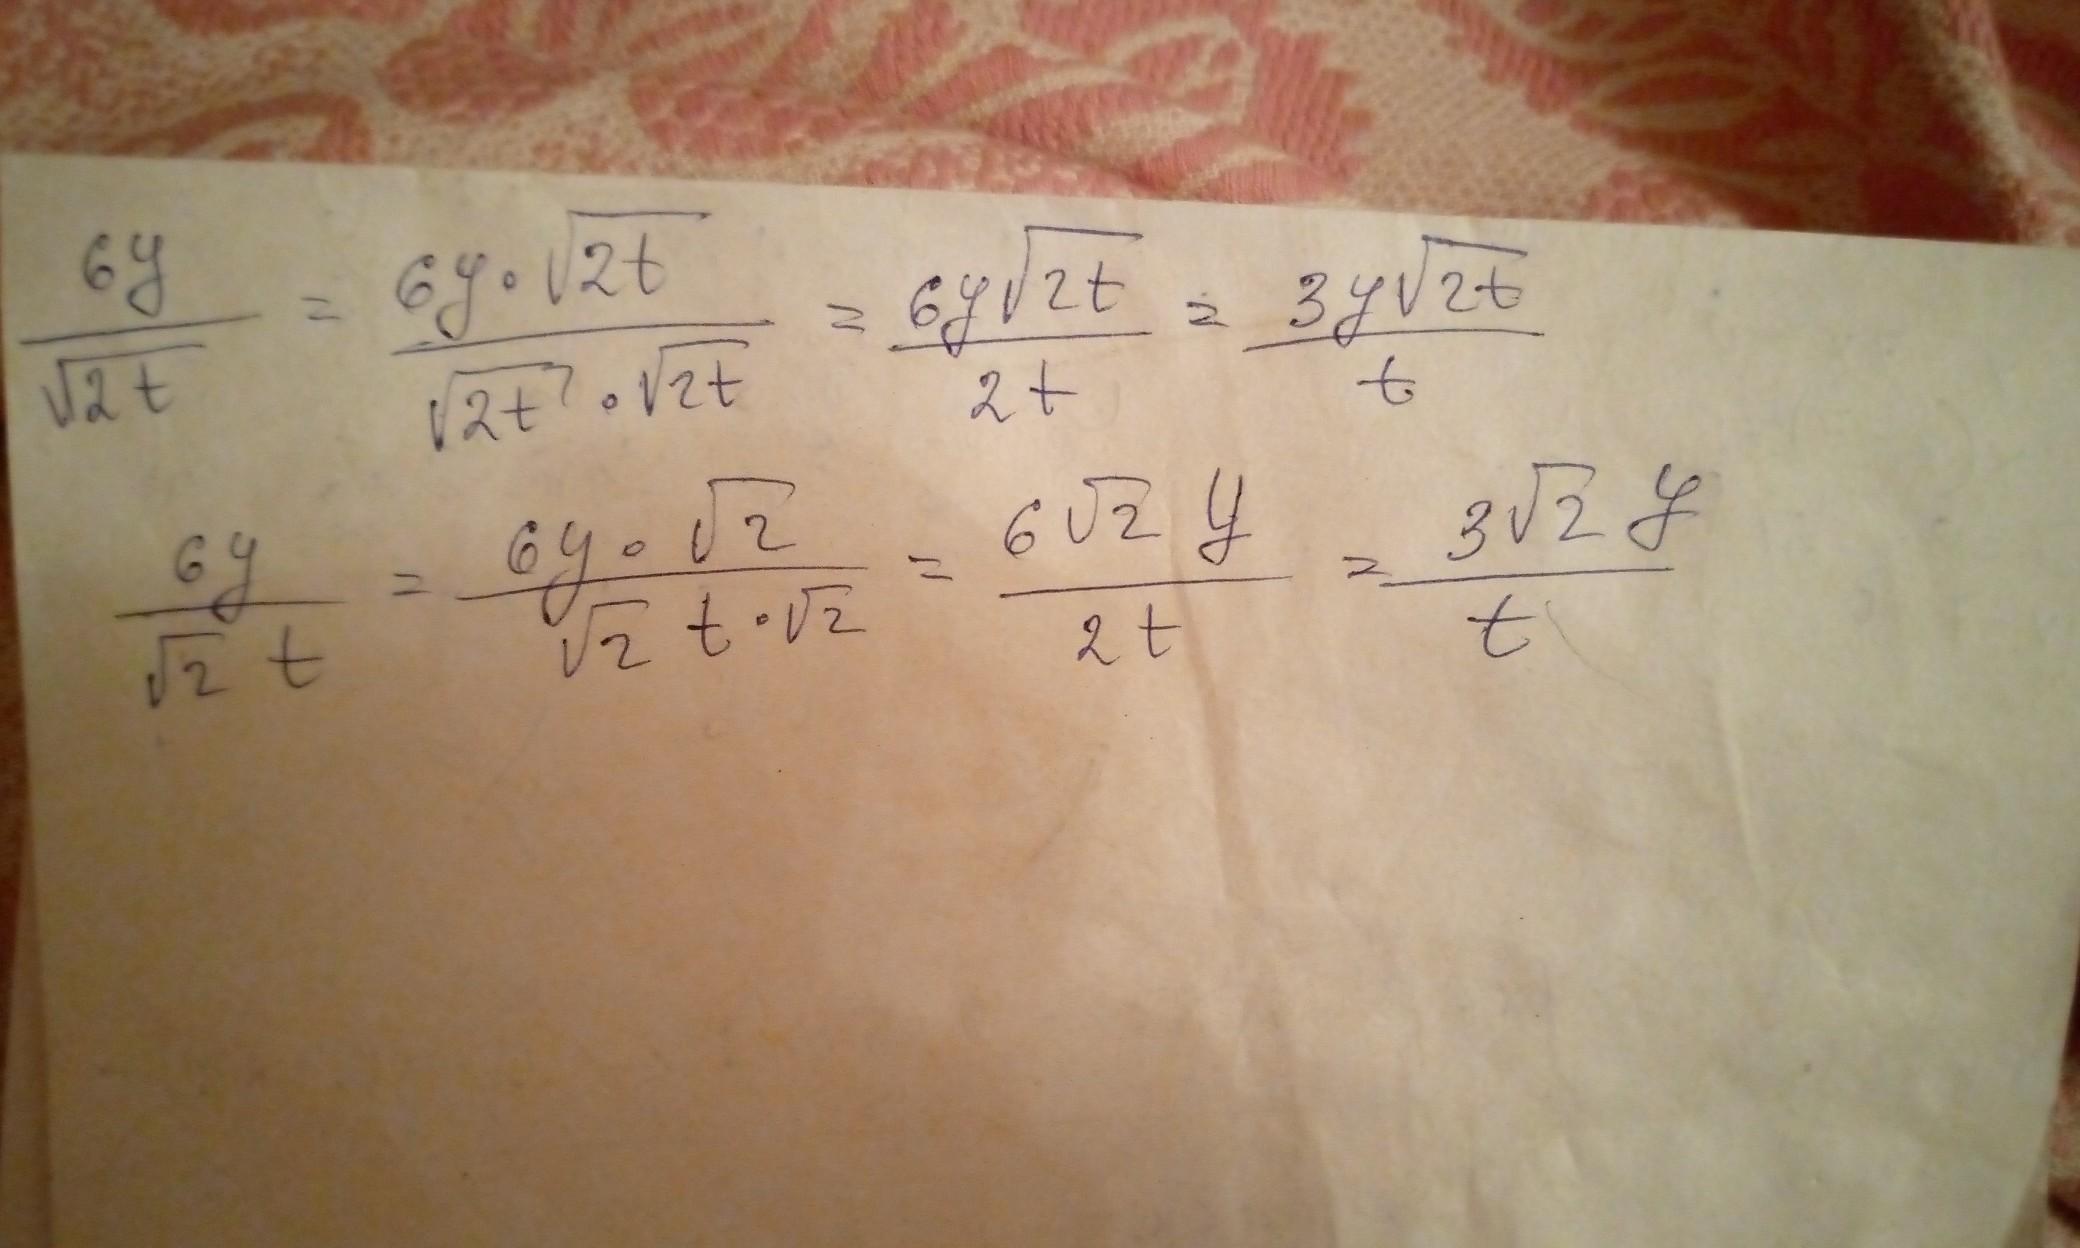 6y/√2t = 6y·√2t/√2t·√2t = 6y√2t/2t = 3y√2t/t
6y/√2 t = 6y·√2/√2 t·√2 = 6√2 y/2t = 3√2 y/t